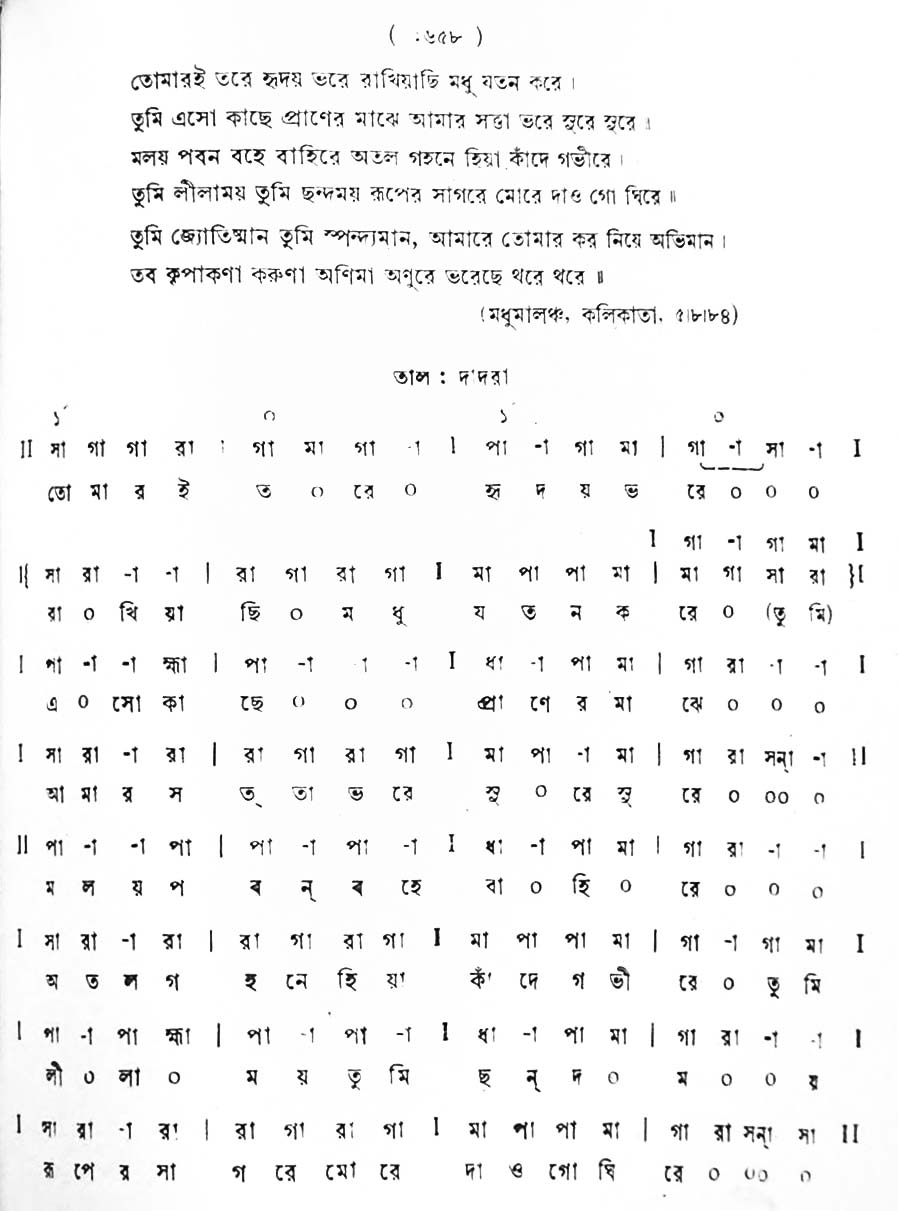 ( ৬৫৮ )
তোমারই তরে হৃদয় ভরে রাখিয়াছি মধু যতন করে ।
তুমি এসো কাছে প্রাণের মাঝে আমার সত্তা ভরে সুরে সুরে ।
মলয় পবন বহে বাহিরে অতল গহনে হিয়া কাঁদে গভীরে ।
তুমি লীলাময় তুমি ছন্দময় রূপের সাগরে মোরে দাও গো ঘিরে ॥
তুমি জ্যোতিষ্মান তুমি স্পন্দ্যমান, আমারে তোমার কর নিয়ে অভিমান ।
তব কৃপাকণা করুণা অণিমা অণুরে ভরেছে থরে থরে ॥
(মধুমালঞ্চ, কলিকাতা, ৫।৮।৮৪)
তাল : দ'দরা
১´ ০ ১´ ০
II সা গা গা রা । গা মা গা -া I পা -া গা মা | গা -া সা -া I
তো মা র ই ত ০ রে ০ হৃ দ য় ভ রে ০ ০ ০
I গা -া গা মা I
I{ সা রা -া -া | রা গা রা গা I মা পা পা মা | মা গা সা রা }I
রা ০ খি য়া ছি ০ ম ধু য ত ন ক রে ০ (তু মি)
I পা -া -া হ্মা | পা -া -া -া I ধা -া পা মা | গা রা -া -া I
এ ০ সো কা ছে ০ ০ ০ প্রা ণে র মা ঝে ০ ০ ০
I সা রা -া রা | রা গা রা গা I মা পা -া মা | গা রা সন্া -া II
আ মা র স ত্ তা ভ রে সু ০ রে সু রে ০ ০০ ০
II পা -া -া পা | পা -া পা -া I ধা -া পা মা | গা রা -া -া I
ম ল য় প ব ন্ ব হে বা ০ হি ০ রে ০ ০ ০
I সা রা -া রা | রা গা রা গা I মা পা পা মা | গা -া গা মা I
অ ত ল গ হ নে হি য়া কাঁ দে গ ভী রে ০ তু মি
I পা -া পা হ্মা | পা -া পা -া I ধা -া পা মা | গা রা -া -া I
লী ০ লা ০ ম য় তু মি ছ ন্ দ ০ ম ০ ০ য়
I সা রা -া রা | রা গা রা গা I মা পা পা মা | গা রা সন্া সা II
রূ পে র সা গ রে মো রে দা ও গো ঘি রে ০ ০০ ০